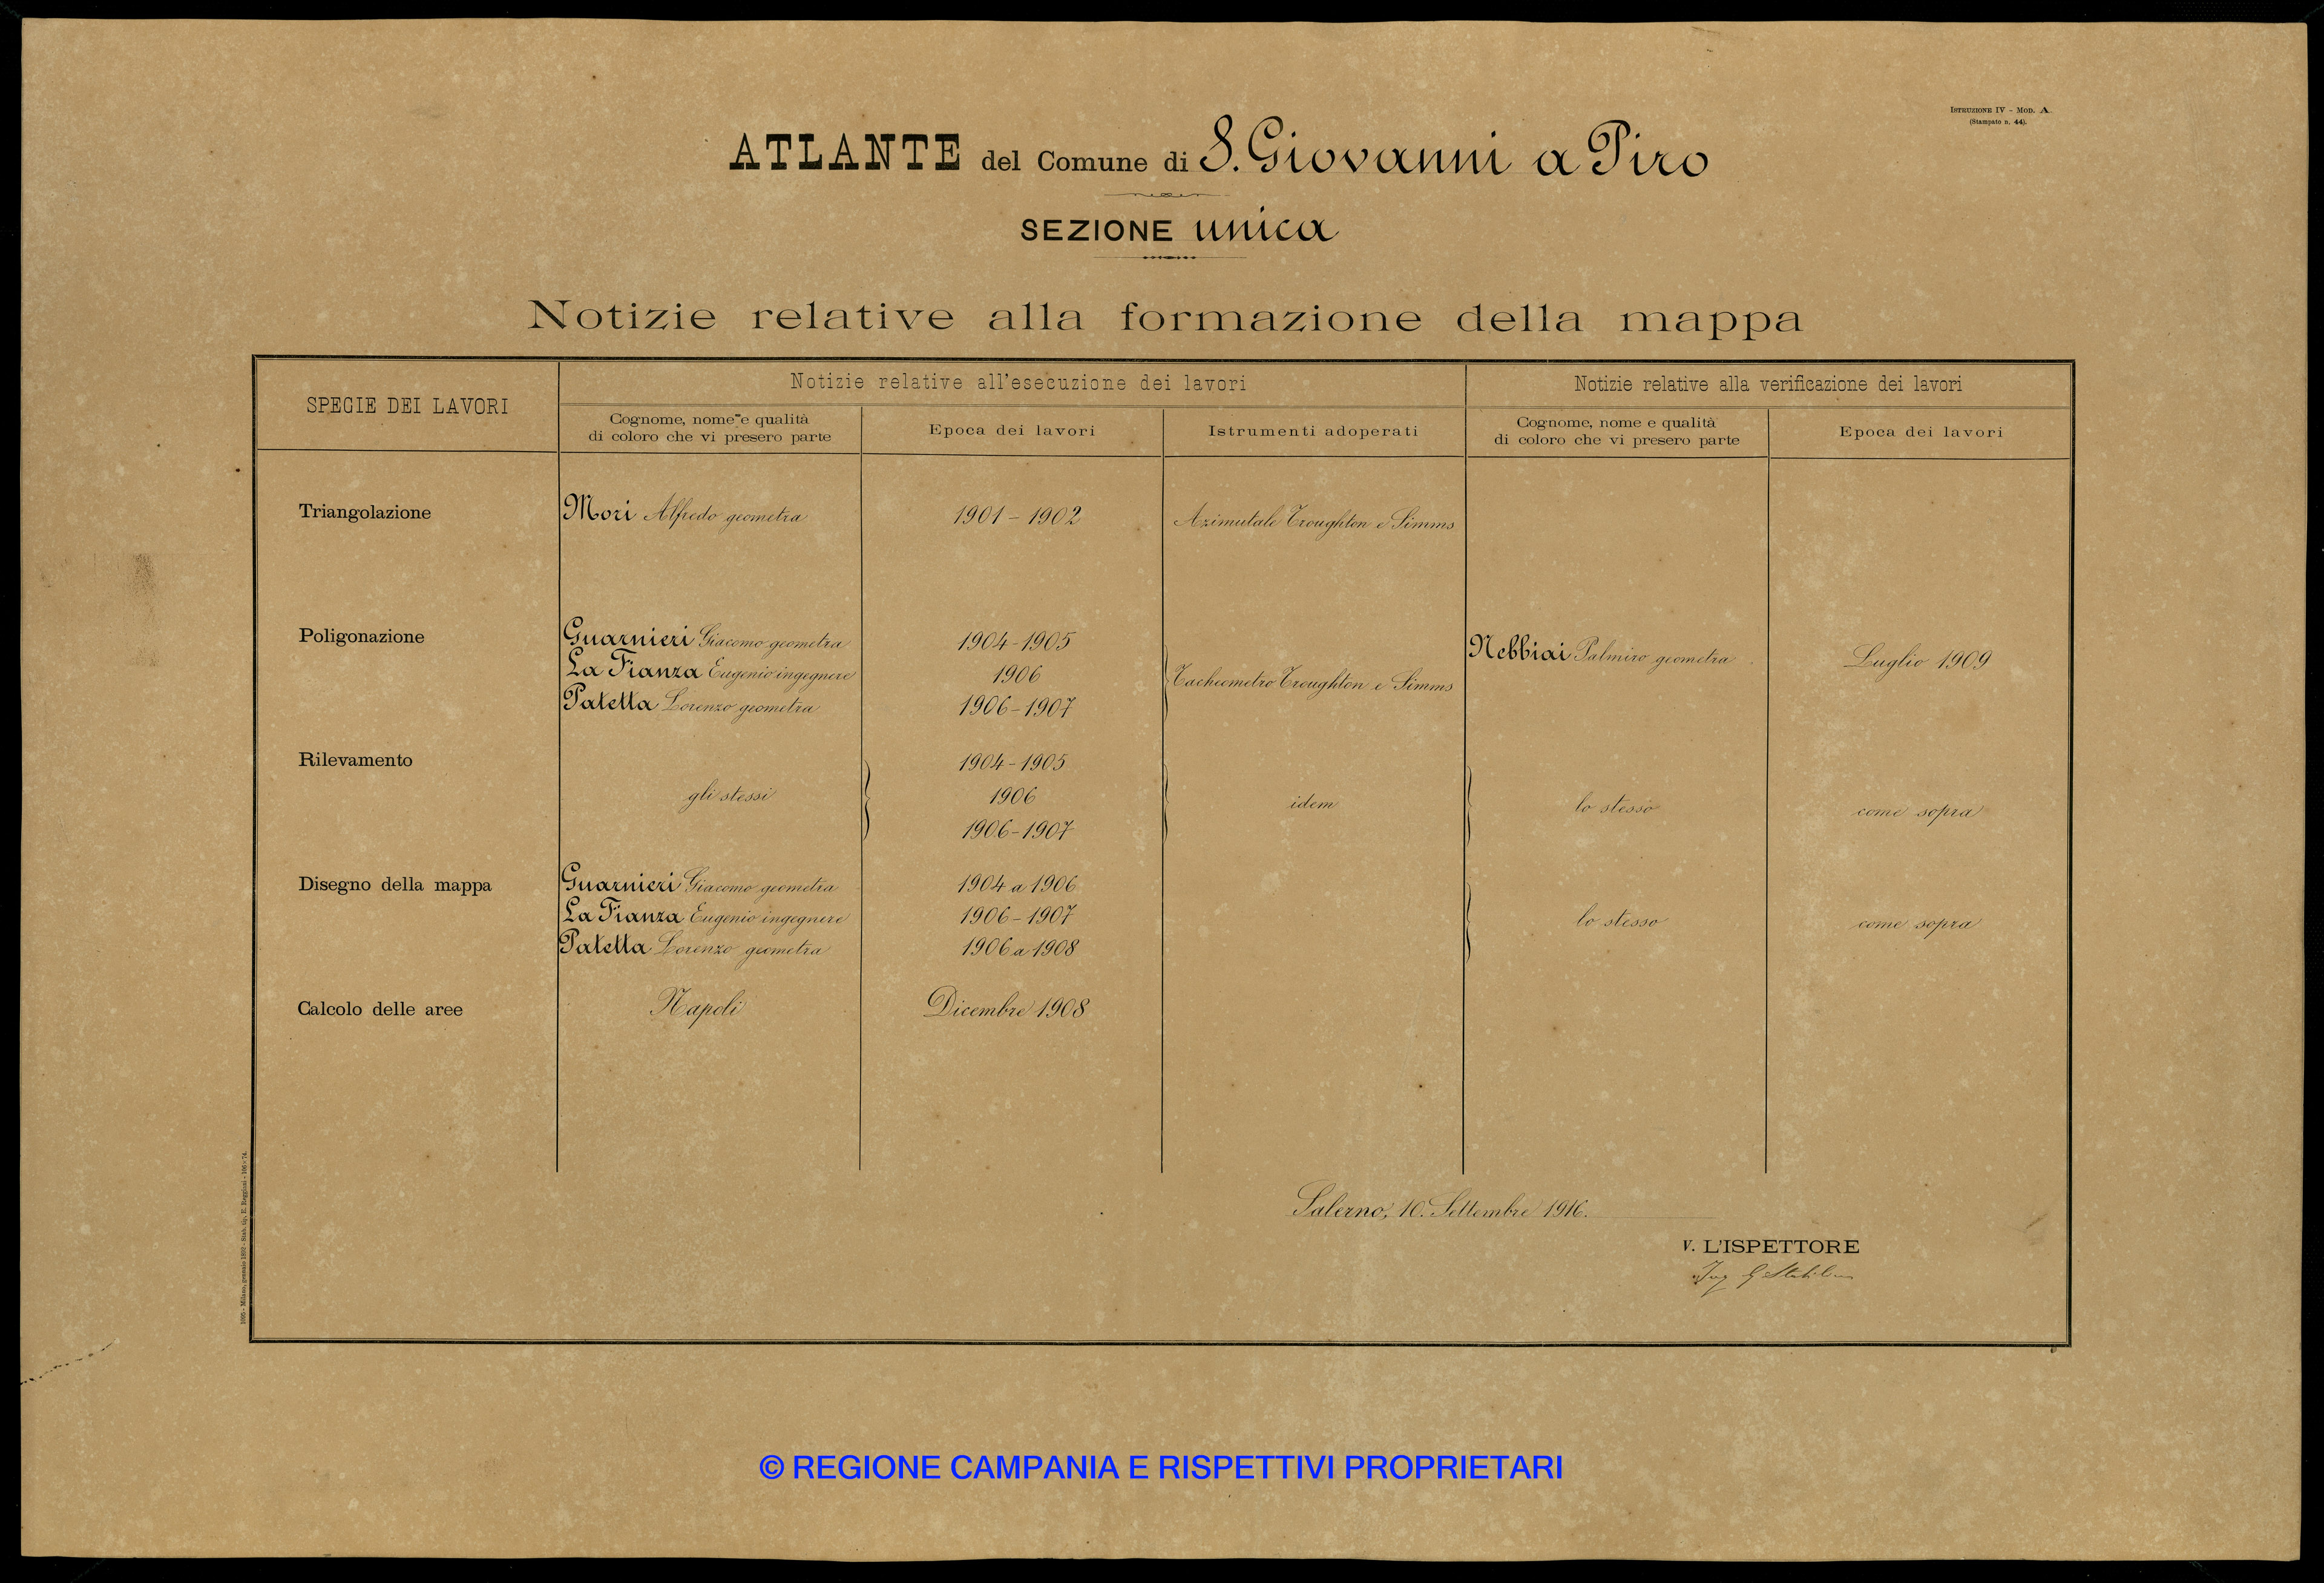 ISTRUZIONE IV - MOD. A
(Stampato n. 44).
ATLANTE del Comune di S. Giovanni a Piro
SEZIONE unica
Notizie relative alla formazione della mappa
SPECIE DEI LAVORI
Notizie relative all'esecuzione dei lavori
Notizie relative alla verificazione dei lavori
Cognome, nome e qualità
di coloro che vi presero parte
Epoca dei lavori
Istrumenti adoperati
Cognome, nome e qualità
di coloro che vi presero parte
Epoca dei lavori
Triangolazione
Mori Alfredo geometra
1901 - 1902
Azimutale Troughton e Simms
Poligonazione
Guarnieri Giacomo geometra
1904-1905
La Fianza Eugenio ingegnere
1906
Patetta Lorenzo geometra
1906-1907
Tacheometro Troughton e Simms
Nebbiai Palmiro geometra
Luglio 1909
Rilevamento
gli stessi
1904-1905
1906
1906-1907
idem
lo stesso
come sopra
Disegno della mappa
Guarnieri Giacomo geometra
1904 a 1906
La Fianza Eugenio ingegnere
1906-1907
Patetta Lorenzo geometra
1906 a 1908
lo stesso
come sopra
Calcolo delle aree
Napoli
Dicembre 1908
Salerno, 10. Settembre 1916.
V. L'ISPETTORE
Ing G
1895 - Milano, gennaio 1892 - Stab. tip. E. Reggiani - 105×74.
© REGIONE CAMPANIA E RISPETTIVI PROPRIETARI